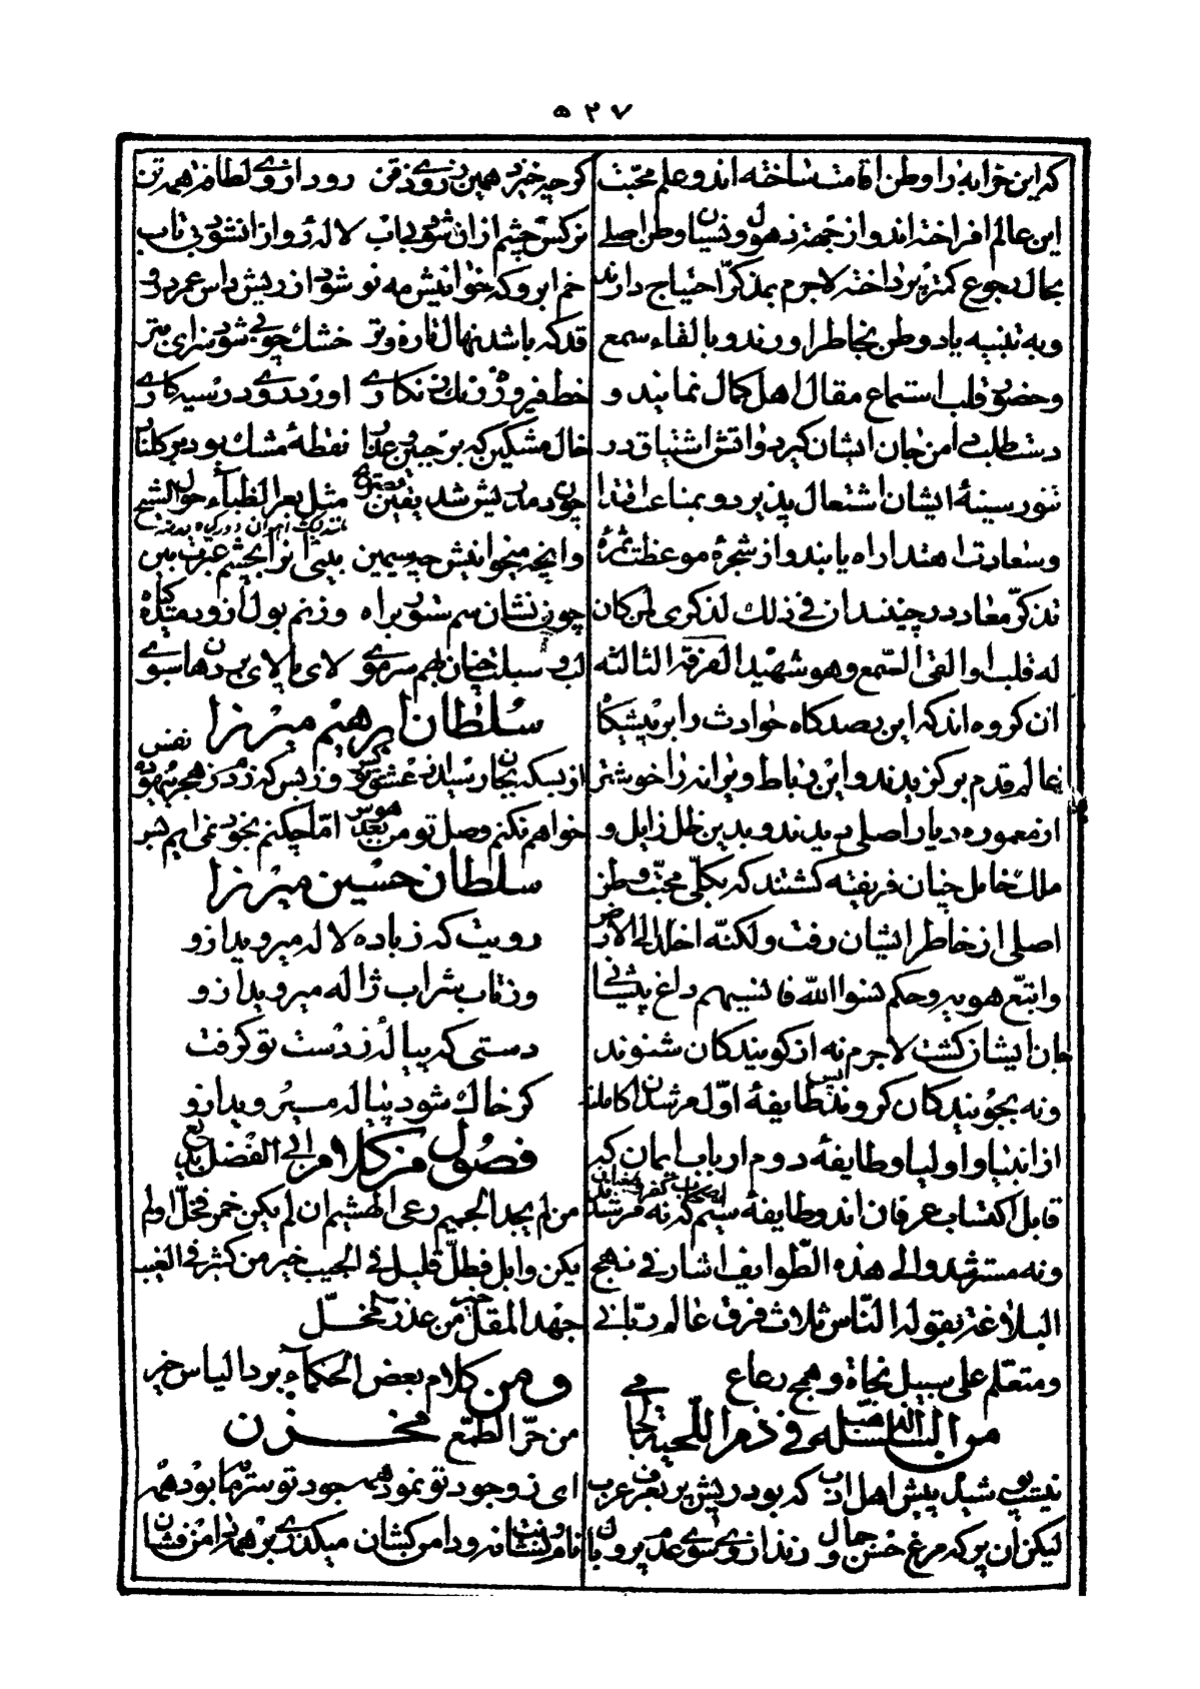 ۵۲۷
که این خرابه را وطن اقامت ساخته اند و علم محبت
این عالم افراخته اند و از جهة ذهول و نسیان وطن اصلے
بحال رجوع کمتر پرداخته لاجرم بمذکر احتیاج دارند
و به تنبیه یاد وطن بخاطر اورند و بالقاء سمع
و حضور قلب استماع مقال اهل کمال نمایند و
دست طلب دامن جان ایشان کیرد و اتش اشتیاق در
تنور سینهٔ ایشان اشتعال پذیرد و بمناعت اقتدا
و سعادت اهتدا راه یابند و از شجرهٔ موعظت ثمرهٔ
تذکر معاد درچینند ان فی ذلک لذکری لمن کان
له قلب او القی السمع و هو شهید الفرقة الثالثه
ان کروه اند که این رصدکاه حوادث را بر پیشکاه
عالم قدم برکزیدند و این رباط ویرانه را خوشتر
از معموره دیار اصلی دیدند و بدین ظل زایل و
ملک خامل چنان فریفته کشتند که بکلی محبت وطن
اصلی از خاطر ایشان رفت و لکنه اخلد الی الارض
و اتبع هویه و حکم نسوا الله فانسیهم داغ پیشانی
جان ایشان کشت لاجرم نه از کویندکان شنوند
و نه بجویندکان کروند پس طایفهٔ اول مرشدان کاملند
از انبیا و اولیا و طایفهٔ دوم ارباب ایمان که
قابل اکتساب عرفان اند و طایفهٔ سیم که نه مرشدند
و نه مسترشد و الی هذه الطوایف اشار فی نهج
البلاغة بقوله الناس ثلاث فرق عالم ربانی
و متعلم علی سبیل نجاة و همج رعاع
من السلسلة فی ذم اللحیة
نیست پوشیده پیش اهل ادب که بود ریش پر بعرف عرب
لیکن ان پر که مرغ حسن و جمال زند از روے سوے عدم پر و بال
کرچه خیزد همین ز روے ذقن رود از وے لطافت همه تن
نرکس چشم ازان شود بی اب لاله رو ازان شود بی تاب
خم ابرو که خوانیش مه نو شود از ریش داس عمر درو
قد که باشد نهال تازه و تر خشک چوبی شود سزای تبر
خط فیروزه رنک زنکارے اورد رو در سیه کارے
خال مشکین که بر جبین و عذار نقطهٔ مشک بود بر کلنار
چون دمد ریش شد یقین مثل بعر الظباء حول الشیح
وانچه میخوانیش چه سیمین بینی انرا بچشم عبرت بین
چون نشان سم ستور براه وز نم بول ازو دمیده کیاه
لب و سبلت چنان بهم سر موے لای پالای بی دهاسوے
سلطان ابرهیم میرزا
از بسکه بجان رسیدم از عشق تو وز بس که زدم ز هجر بیهوده نفس
خواهم نکنم وصل تو من بعد هوس اما چکنم بخود نمی ایم بس
سلطان حسین میرزا
رویت که ز باده لاله میروید ازو
وز تاب شراب ژاله میروید ازو
دستی که پیاله ز دست تو کرفت
کر خاک شود پیاله میروید ازو
فصول من کلام ابی الفضل بدیع
من لم یجد الجمیم رعی الهشیم ان لم یکن خمر فخل او لم
یکن وابل فطل قلیل فی الجیب خیر من کثیر فی الغیب
جهد المقل خیر من عذر المخل
و من کلام بعض الحکماء برد الیاس خیر
من حر الطمع مخزن
ای ز وجود تو نمود همه جود تو سرمایهٔ بود همه
نام و نشانت نه و دامن کشان میکذرے بر همه دامن فشان